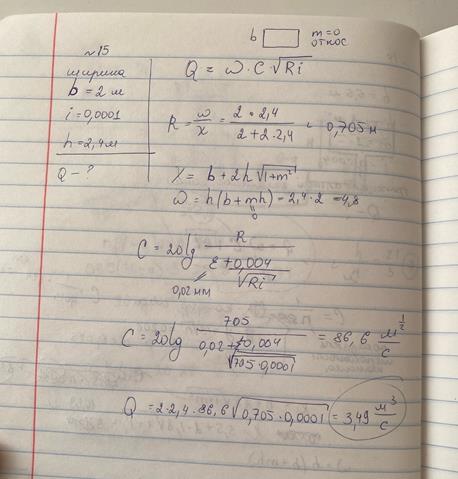 b m=0
откос
~15
ширина
b = 2 м
i = 0,0001
h = 2,4 м
Q - ?
Q = ω · C · √Ri
R = ω/χ = 2 · 2,4 / 2 + 2 · 2,4 = 0,705 м
χ = b + 2h√1+m²
ω = h(b + mh) = 2,4 · 2 = 4,8
0
C = 20lg R / ε + 0,004/√Ri
0,02 мм
C = 20lg 705 / 0,02 + 0,004/√705·0,0001 = 86,6 м^1/2 / с
Q = 2·2,4·86,6√0,705·0,0001 = 3,49 м³/с